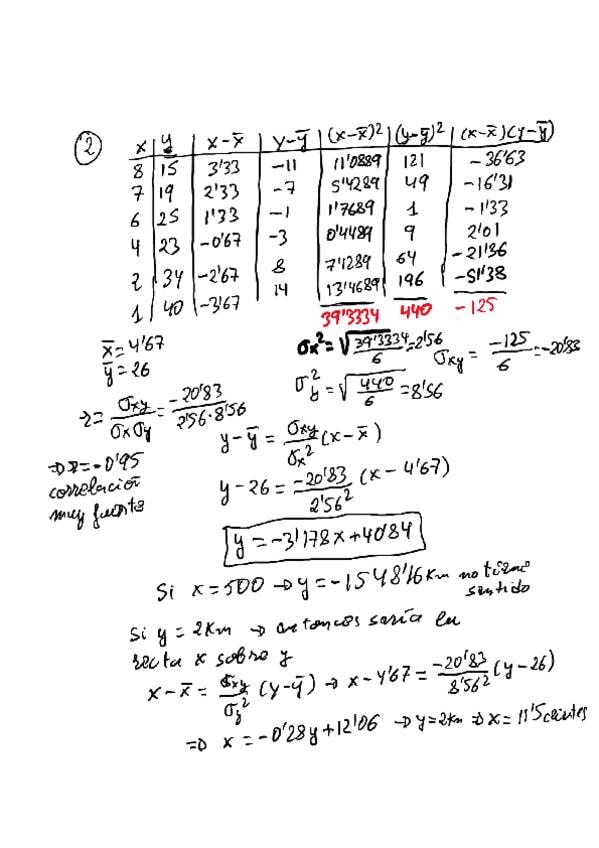 2
x y x-x̄ y-ȳ (x-x̄)² (y-ȳ)² (x-x̄)(y-ȳ)
8 15 3'33 -11 11'0889 121 -36'63
7 19 2'33 -7 5'4289 49 -16'31
6 25 1'33 -1 1'7689 1 -1'33
4 23 -0'67 -3 0'4489 9 2'01
2 34 -2'67 8 7'1289 64 -21'36
1 40 -3'67 14 13'4689 196 -51'38
39'3334 440 -125
x̄=4'67
ȳ=26
σx²=√(39'3334/6)=2'56
σxy=-125/6=-20'83
σy²=√(440/6)=8'56
r=σxy/(σxσy)=-20'83/(2'56·8'56)
⇒r=-0'95
correlación
muy fuerte
y-ȳ=σxy/σx²(x-x̄)
y-26=-20'83/2'56²(x-4'67)
y=-3'178x+40'84
Si x=500→y=-1548'16Km no tiene
sentido
Si y=2Km→entonces sería la
recta x sobre y
x-x̄=σxy/σy²(y-ȳ)→x-4'67=-20'83/8'56²(y-26)
⇒x=-0'28y+12'06→y=2Km⇒x=11'5clientes